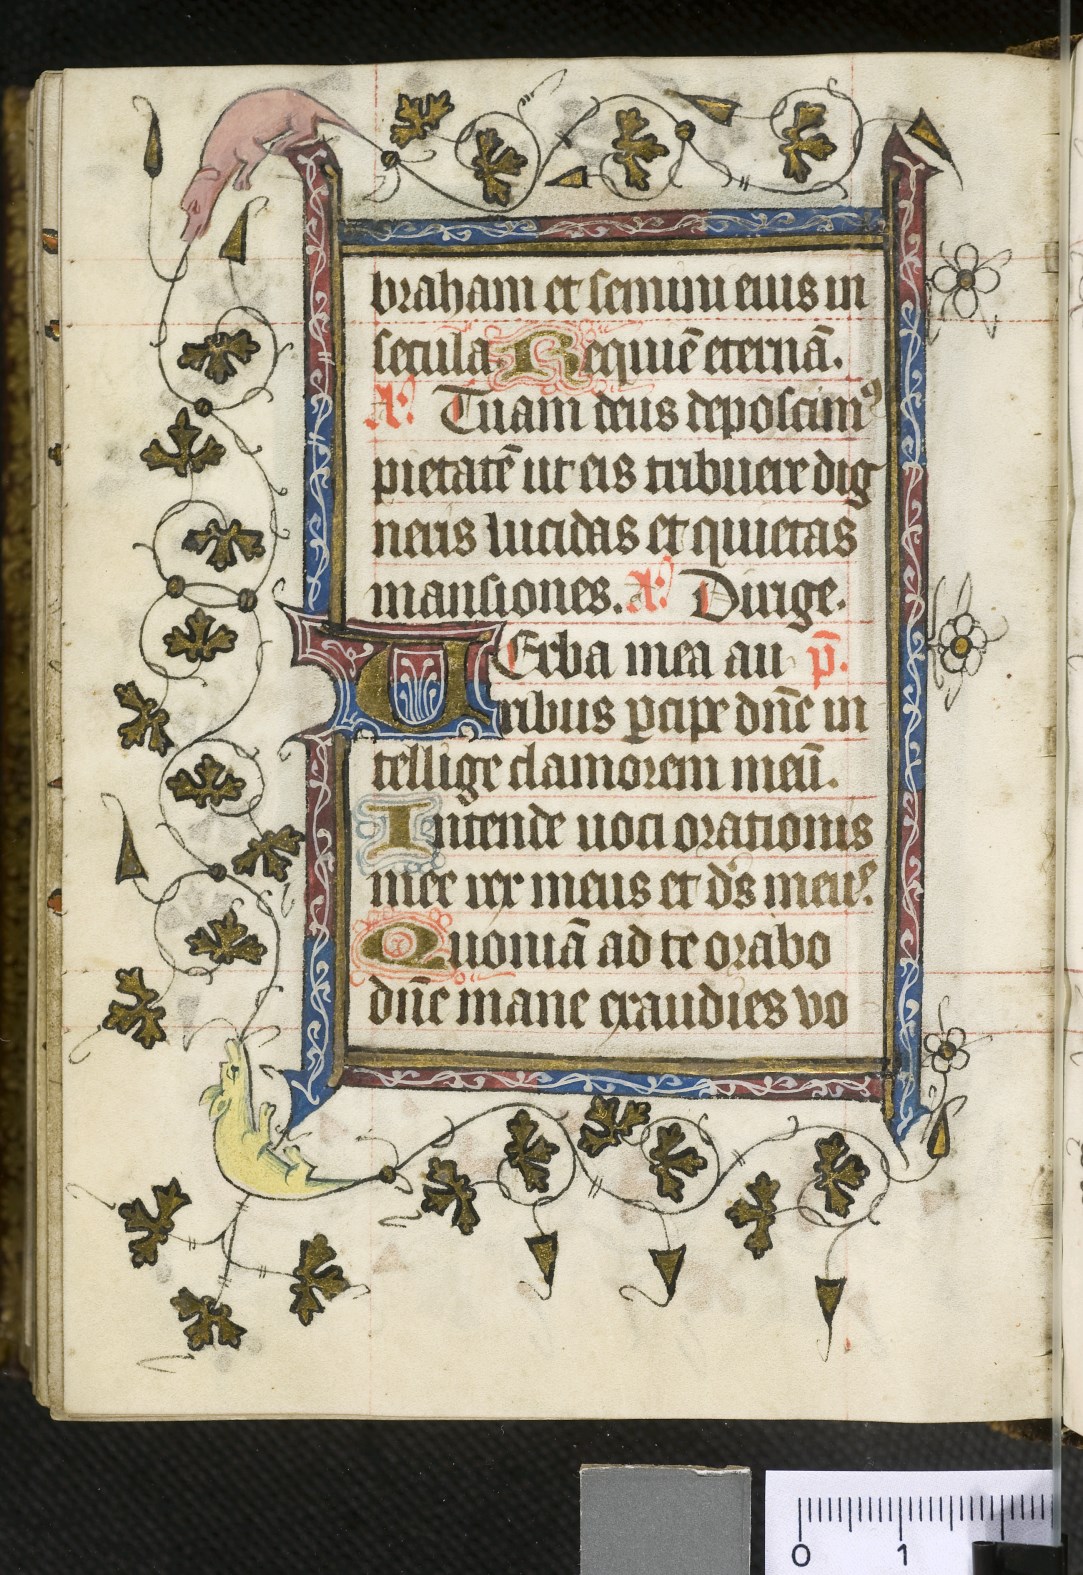 braham et semini eius in
secula Requiē eternā.
A᷈. Tuam deus deposcimꝰ
pietatē ut eis tribuere dig
neris lucidas et quietas
mansiones. A᷈. Dirige.
UErba mea au p̄.
ribus ꝑcipe dn̄e in
tellige clamorem meū.
Intende uoci orationis
mee rex meus et ds̄ meus.
Quoniā ad te orabo
dn̄e mane exaudies vo
0 1